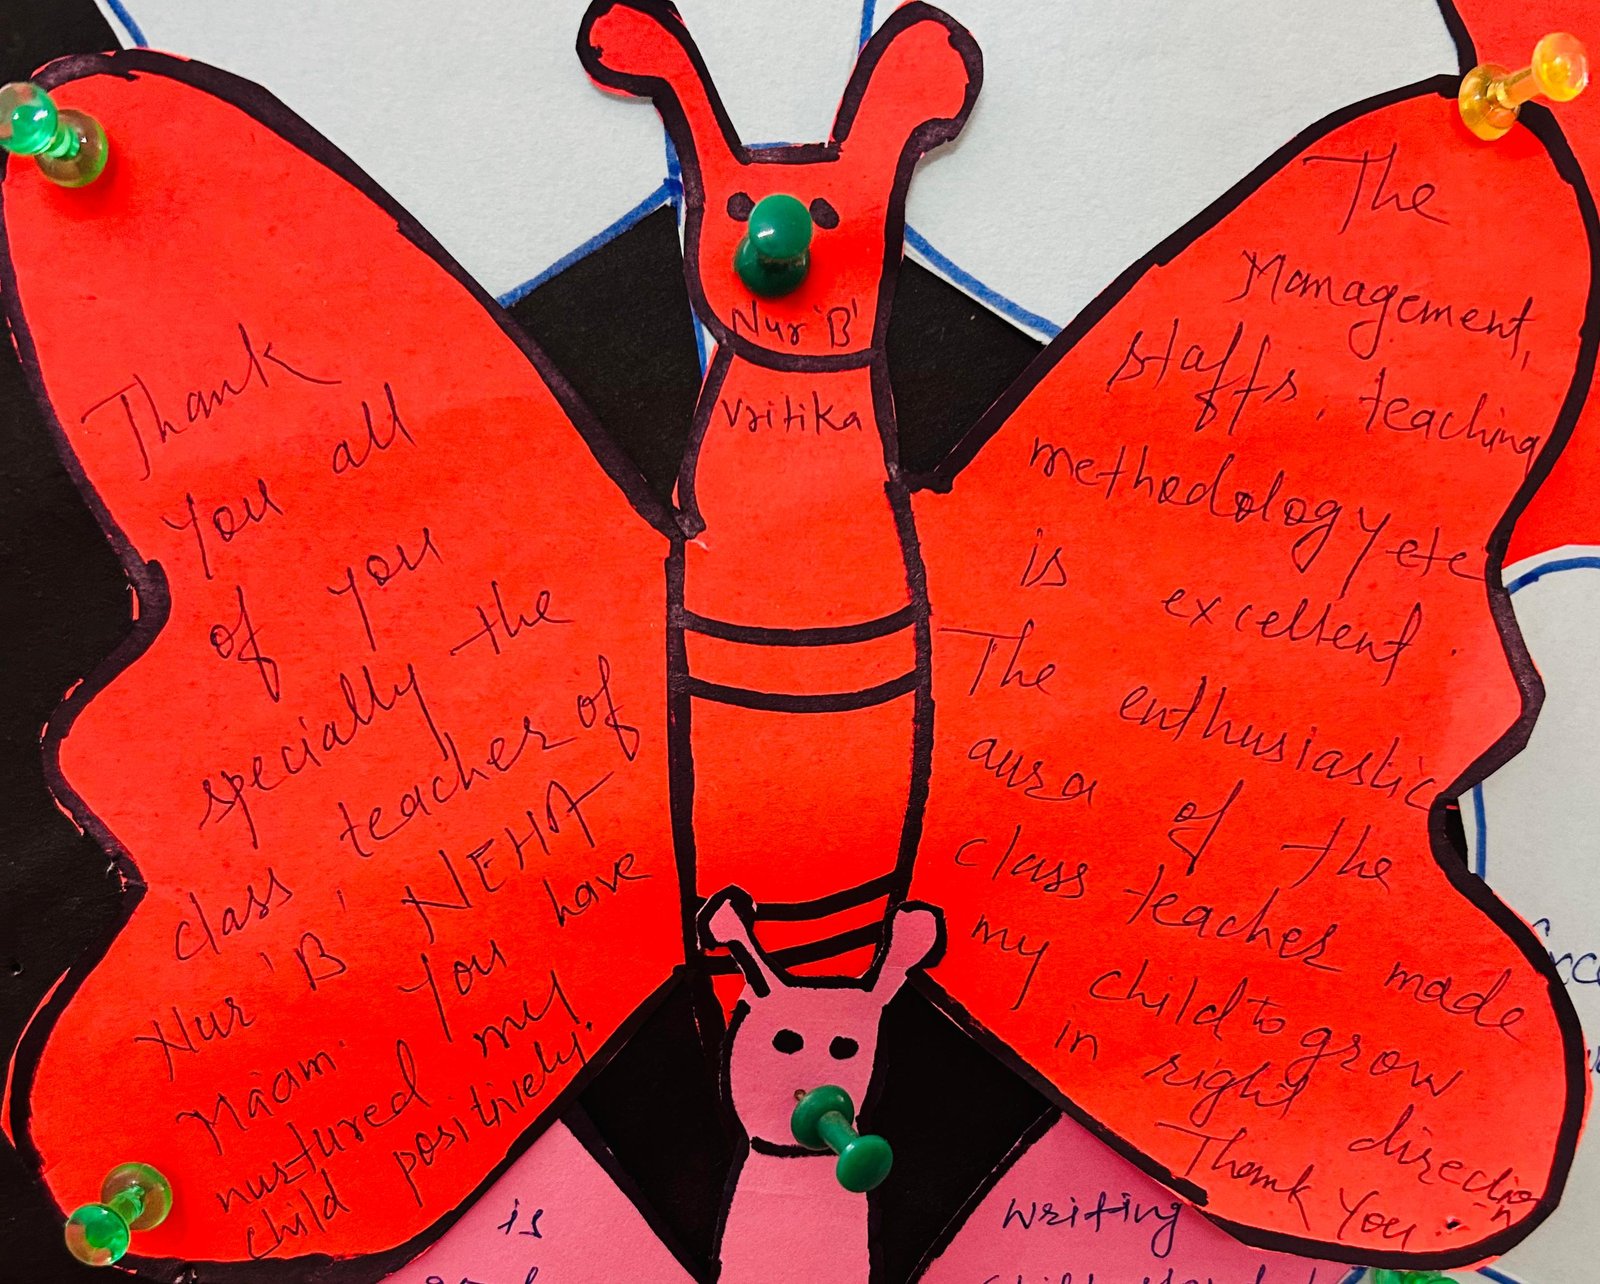 Nur 'B'
Vritika
Thank
you all
of you
specially the
class teacher of
Nur 'B', NEHA
Ma'am. You have
nurtured my
child positively.
The
Management,
staffs, teaching
methodology etc
is excellent.
The enthusiastic
aura of the
class teacher made
my child to grow
in right direction
Thank You.
is
writing